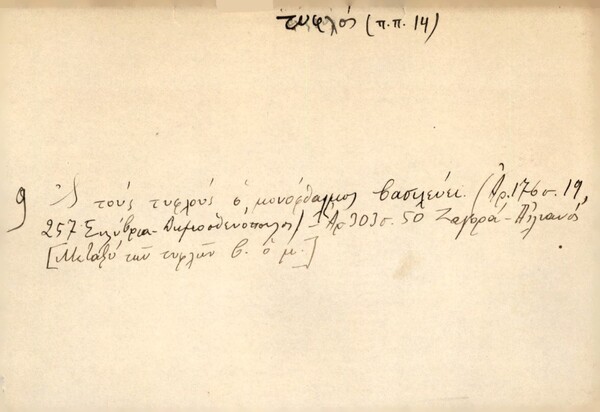 τυφλός (π.π. 14)
9) Σ τούς τυφλούς ὁ μονόφθαλμος βασιλεύει. (Ἀρ. 176 σ. 19,
257 Σηλύβρια - Δημοσθενόπουλος) - Ἀρ 303 σ. 50 Ζαγορά -
[Μεταξύ τῶν τυφλῶν β. ὁ μ.]